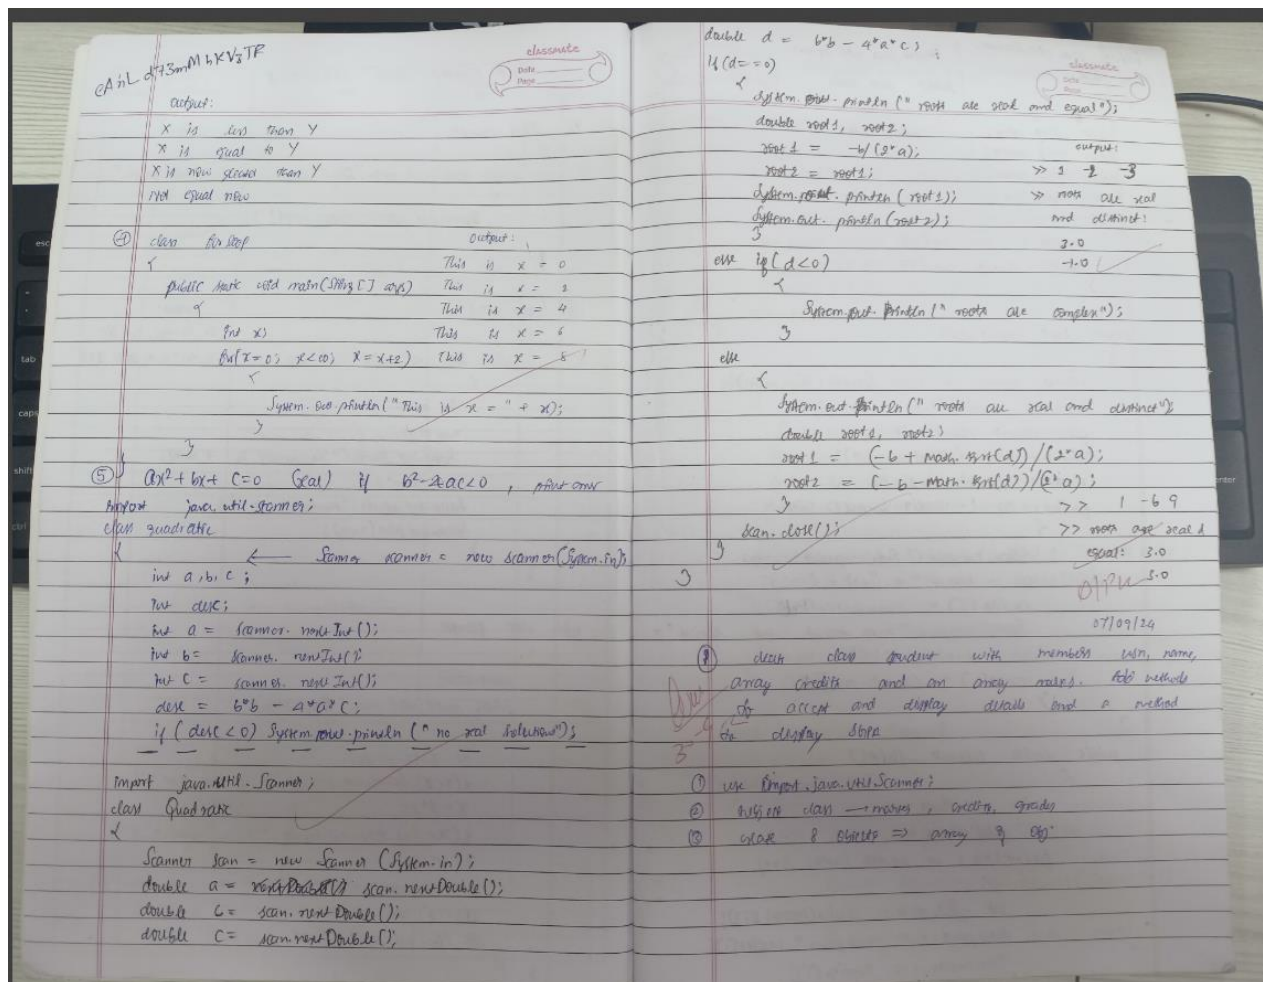 classmate
Date
Page
output:
X is less than Y
X is equal to Y
X is now greater than Y
Not equal now
④ class forloop
{
public static void main(String[] args)
{
int x;
for(x=0; x<10; x=x+2)
{
System.out.println("This is x = " + x);
}
}
}
Output:
This is x = 0
This is x = 2
This is x = 4
This is x = 6
This is x = 8
⑤ ax²+bx+c=0 (real) if b²-4ac<0, print
import java.util.scanner;
class quadratic
{ ← Scanner scanner = new scanner(System.in);
int a,b,c;
int desc;
int a = scanner.nextInt();
int b = scanner.nextInt();
int c = scanner.nextInt();
desc = b*b - 4*a*c;
if (desc<0) System.out.println("no real solutions");
import java.util.Scanner;
class Quadratic
{
Scanner scan = new Scanner(System.in);
double a = scan.nextDouble();
double b = scan.nextDouble();
double c = scan.nextDouble();
double d = b*b - 4*a*c;
classmate
Date
Page
if(d==0)
{
System.out.println("roots are real and equal");
double root1, root2;
root1 = -b/(2*a);
root2 = root1;
System.out.println(root1);
System.out.println(root2);
}
output:
>> 1 -2 -3
>> roots are real
and distinct:
3.0
-1.0
else if(d<0)
{
System.out.println("roots are complex");
}
else
{
System.out.println("roots are real and distinct");
double root1, root2;
root1 = (-b + Math.sqrt(d))/(2*a);
root2 = (-b - Math.sqrt(d))/(2*a);
}
scan.close();
}
}
>> 1 -6 9
>> roots are real &
equal: 3.0
3.0
O/P
07/09/24
class student with members usn, name,
array credits and an array marks. Add methods
to accept and display details and a method
to display SGPA
① use import java.util.Scanner;
② class → marks, credits, grades
③ create 8 objects ⇒ array of obj.
esc
tab
caps
shift
ctrl
enter